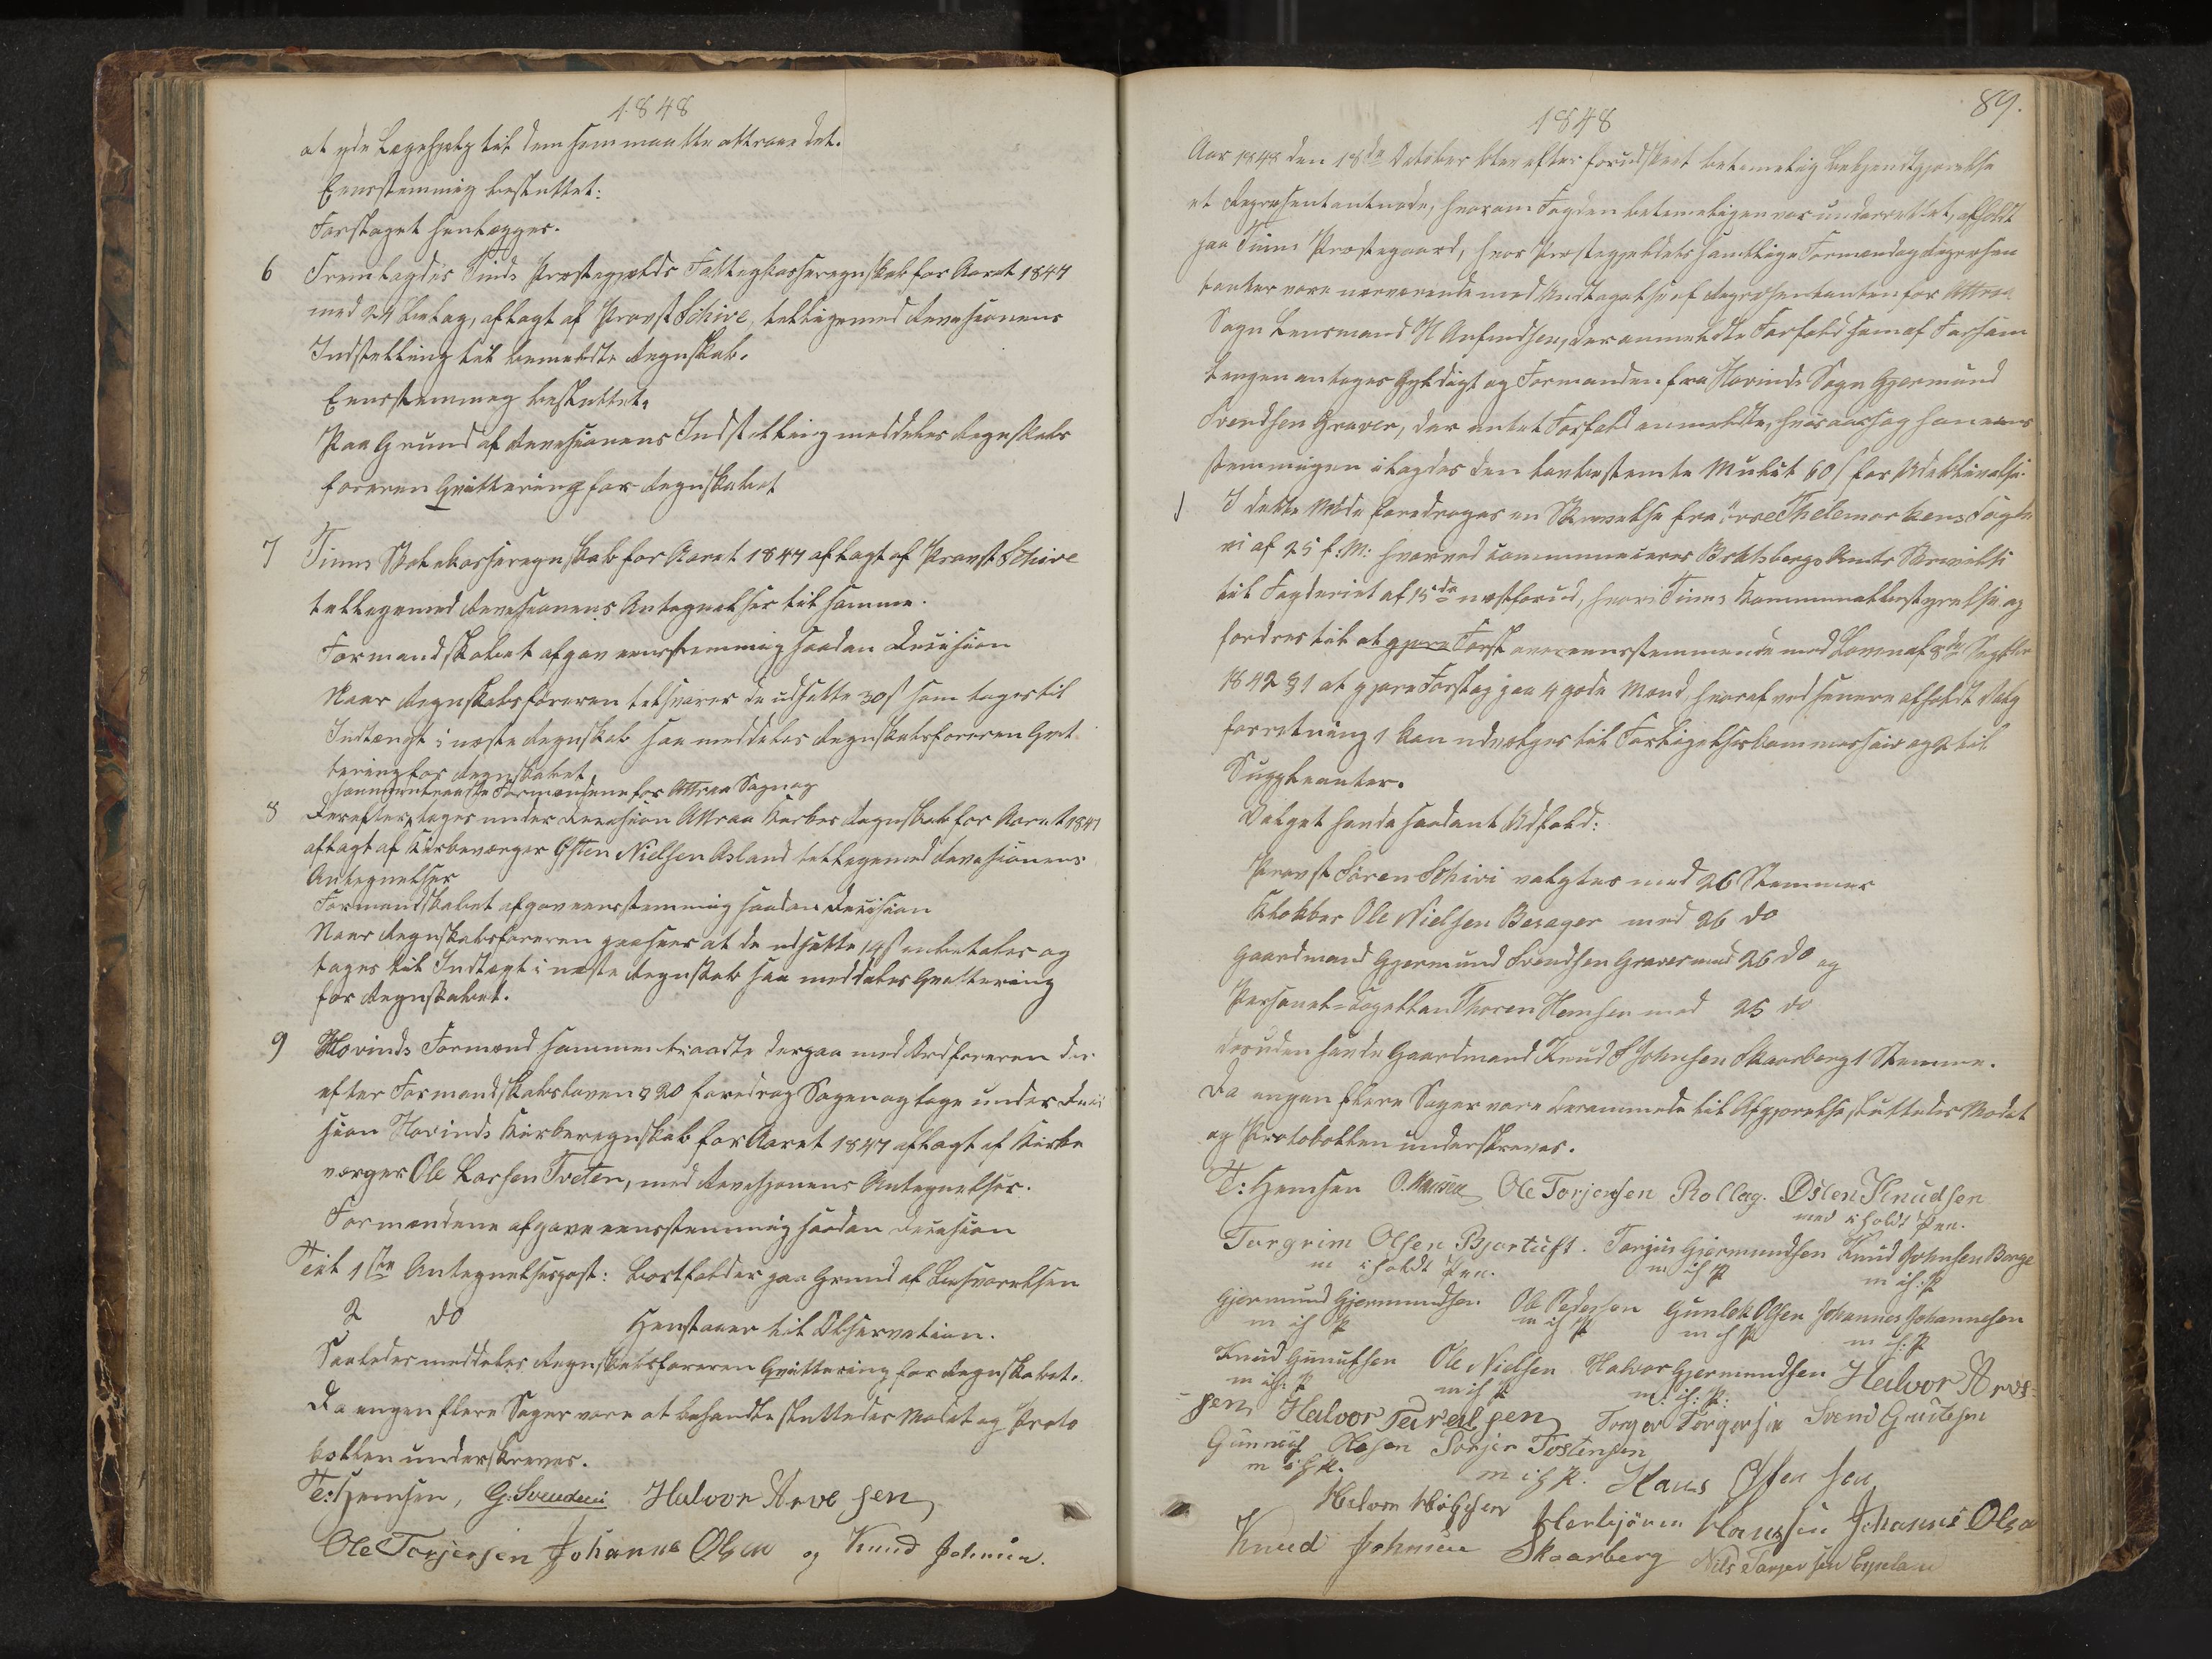 1848
at yde Lægehjelp til dem som maatte attraae det.
Eensstemmig besluttet:
Forslaget henlægges.
6 Fremlagdes Tinds Præstegjelds Fattigkasseregnskab for Aaret 1847
med 24 Bilag, aflagt af Provst Schive, tilligemed Revisionens
Indstilling til bemeldte Regnskab.
Eensstemmig besluttet.
Paa Grund af Revisionens Indstilling meddeles Regnskabs
føreren Qvittering for Regnskabet
7 Tinns Skolekasseregnskab for Aaret 1847 aflagt af Provst Schive
tilligemed Revisionens Antegnelser til samme.
Formandskabet afgav eensstemmig saadan Decision
Naar Regnskabsføreren tilsvarer de udsatte 30 s som tages til
Indtægt i næste Regnskab saa meddeles Regnskabsføreren Qvit
tering for Regnskabet
sammentraadte Formændene for Attraa Sogn og
8 Derefter toges under Decision Attraa Kirkes Regnskab for Aaret 1847
aflagt af Kirkeværger Østen Nielsen Asland tilligemed Revisionens
Antegnelser
Formandskabet afgav eensstemmig saadan Decision
Naar Regnskabsføreren paaseer at de udsatte 14 s indbetales og
tages til Indtægt i næste Regnskab saa meddeles Qvittering
for Regnskabet.
9 Hovinds Formænd sammentraadte derpaa med Ordføreren der
efter Formandskabsloven § 20 foredrog Sagen og toge under Deci
sion Hovinds Kirkeregnskab for Aaret 1847 aflagt af Kirke
værger Ole Larsen Tveten, med Revisjonens Antegnelser.
Formændene afgave eensstemmig saadan Decision
Til 1ste Antegnelsespost: bortfalder paa Grund af Besvarelsen
2 do Henstaaer til Observation.
Saaledes meddeles Regnskabsføreren Qvittering for Regnskabet.
Da ingen flere Sager vare at behandle sluttedes Mødet og Proto
kollen underskreves.
T: Hemsen, G. Svendsen Halvor Arve sen
Ole Torjersen Johannes Olsen og Knud Johnsen.
89.
1848
Aar 1848 den 18de October blev efter forudskeet betimelig Bekjendtgjørelse
et Repræsentantmøde, hvorom Fogden betimeligen var underrettet, afholdt
paa Tinns Præstegaard, hvor Præstegjeldets samtlige Formænd og Repræsen
tanter vare nærværende med Undtagelse af Repræsentanten for Attraa
Sogn Lensmand H Anfindsen, der anmeldte Forfald som af Forsam
lingen antoges Gyldigt og Formanden fra Hovinds Sogn Gjermund
Svendsen Graver, der intet Forfald anmeldte, hvoraarsag han eens
stemmigen ilagdes den lovbestemte Mulct 60 s for Udeblivelse.
1 I dette Møde foredroges en Skrivelse fra øvre Thelemarkens Fogde
ri af 25 f: M: hvorved communiceres Bratsbergs Amts Skrivelse
til Fogderiet af 15de næstforud, hvori Tinns Kommunalbestyrelse op
fordres til at gjøre Forsl overeensstemmende med Loven af 8de Septbr
1842 § 1 at gjøre Forslag paa 4 gode Mænd, hvoraf ved senere afholdt Valg
forretning 1 kan udvælges til Forligelseskommissair og 2 til
Suppleanter.
Valget havde saadant Udfald:
Provst Søren Schive valgtes med 26 Stemmer
Klokker Ole Nielsen Besager med 26 do
Gaardmand Gjermund Svendsen Graver med 26 do og
Personel-Capellan Thoren Hemsen med 25 do
desuden havde Gaardmand Knud Johnsen Skaarberg 1 Stemme.
Da ingen flere Sager vare berammede til Afgjørelse, sluttedes Mødet
og Protokollen underskreves.
T: Hemsen O. Ole Torjersen Rollag. Østen Knudsen
med iholdt Pen.
Torgrim Olsen Bjortuft. Torjus Gjermundsen Knud Johnsen Berge
m iholdt Pen. m ih P m ih: P
Gjermund Gjermundsen Ole Pedersen Gunlek Olsen Johannes Johannesen
m ih P m ih P m ih P m ih: P
Knud Gunulfsen Ole Nielsen Halvor Gjermundsen Halvor Arve-
m ih: P m ih P m: ih: P:
sen Halvor Taralsen Torger Torgersen Svend
Gunnulf Olesen Torjer Tostensen
m ih P. m ih P. Hans Olsen
Halvor Herbjørn Hansen Johannes Olsen
Knud Johnsen Skaarberg Nils Torjersen